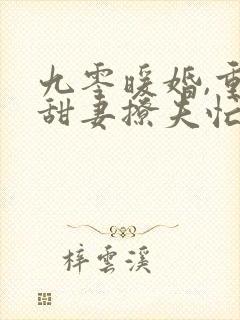 九零暖婚,重
甜妻撩夫忙
梓雲溪